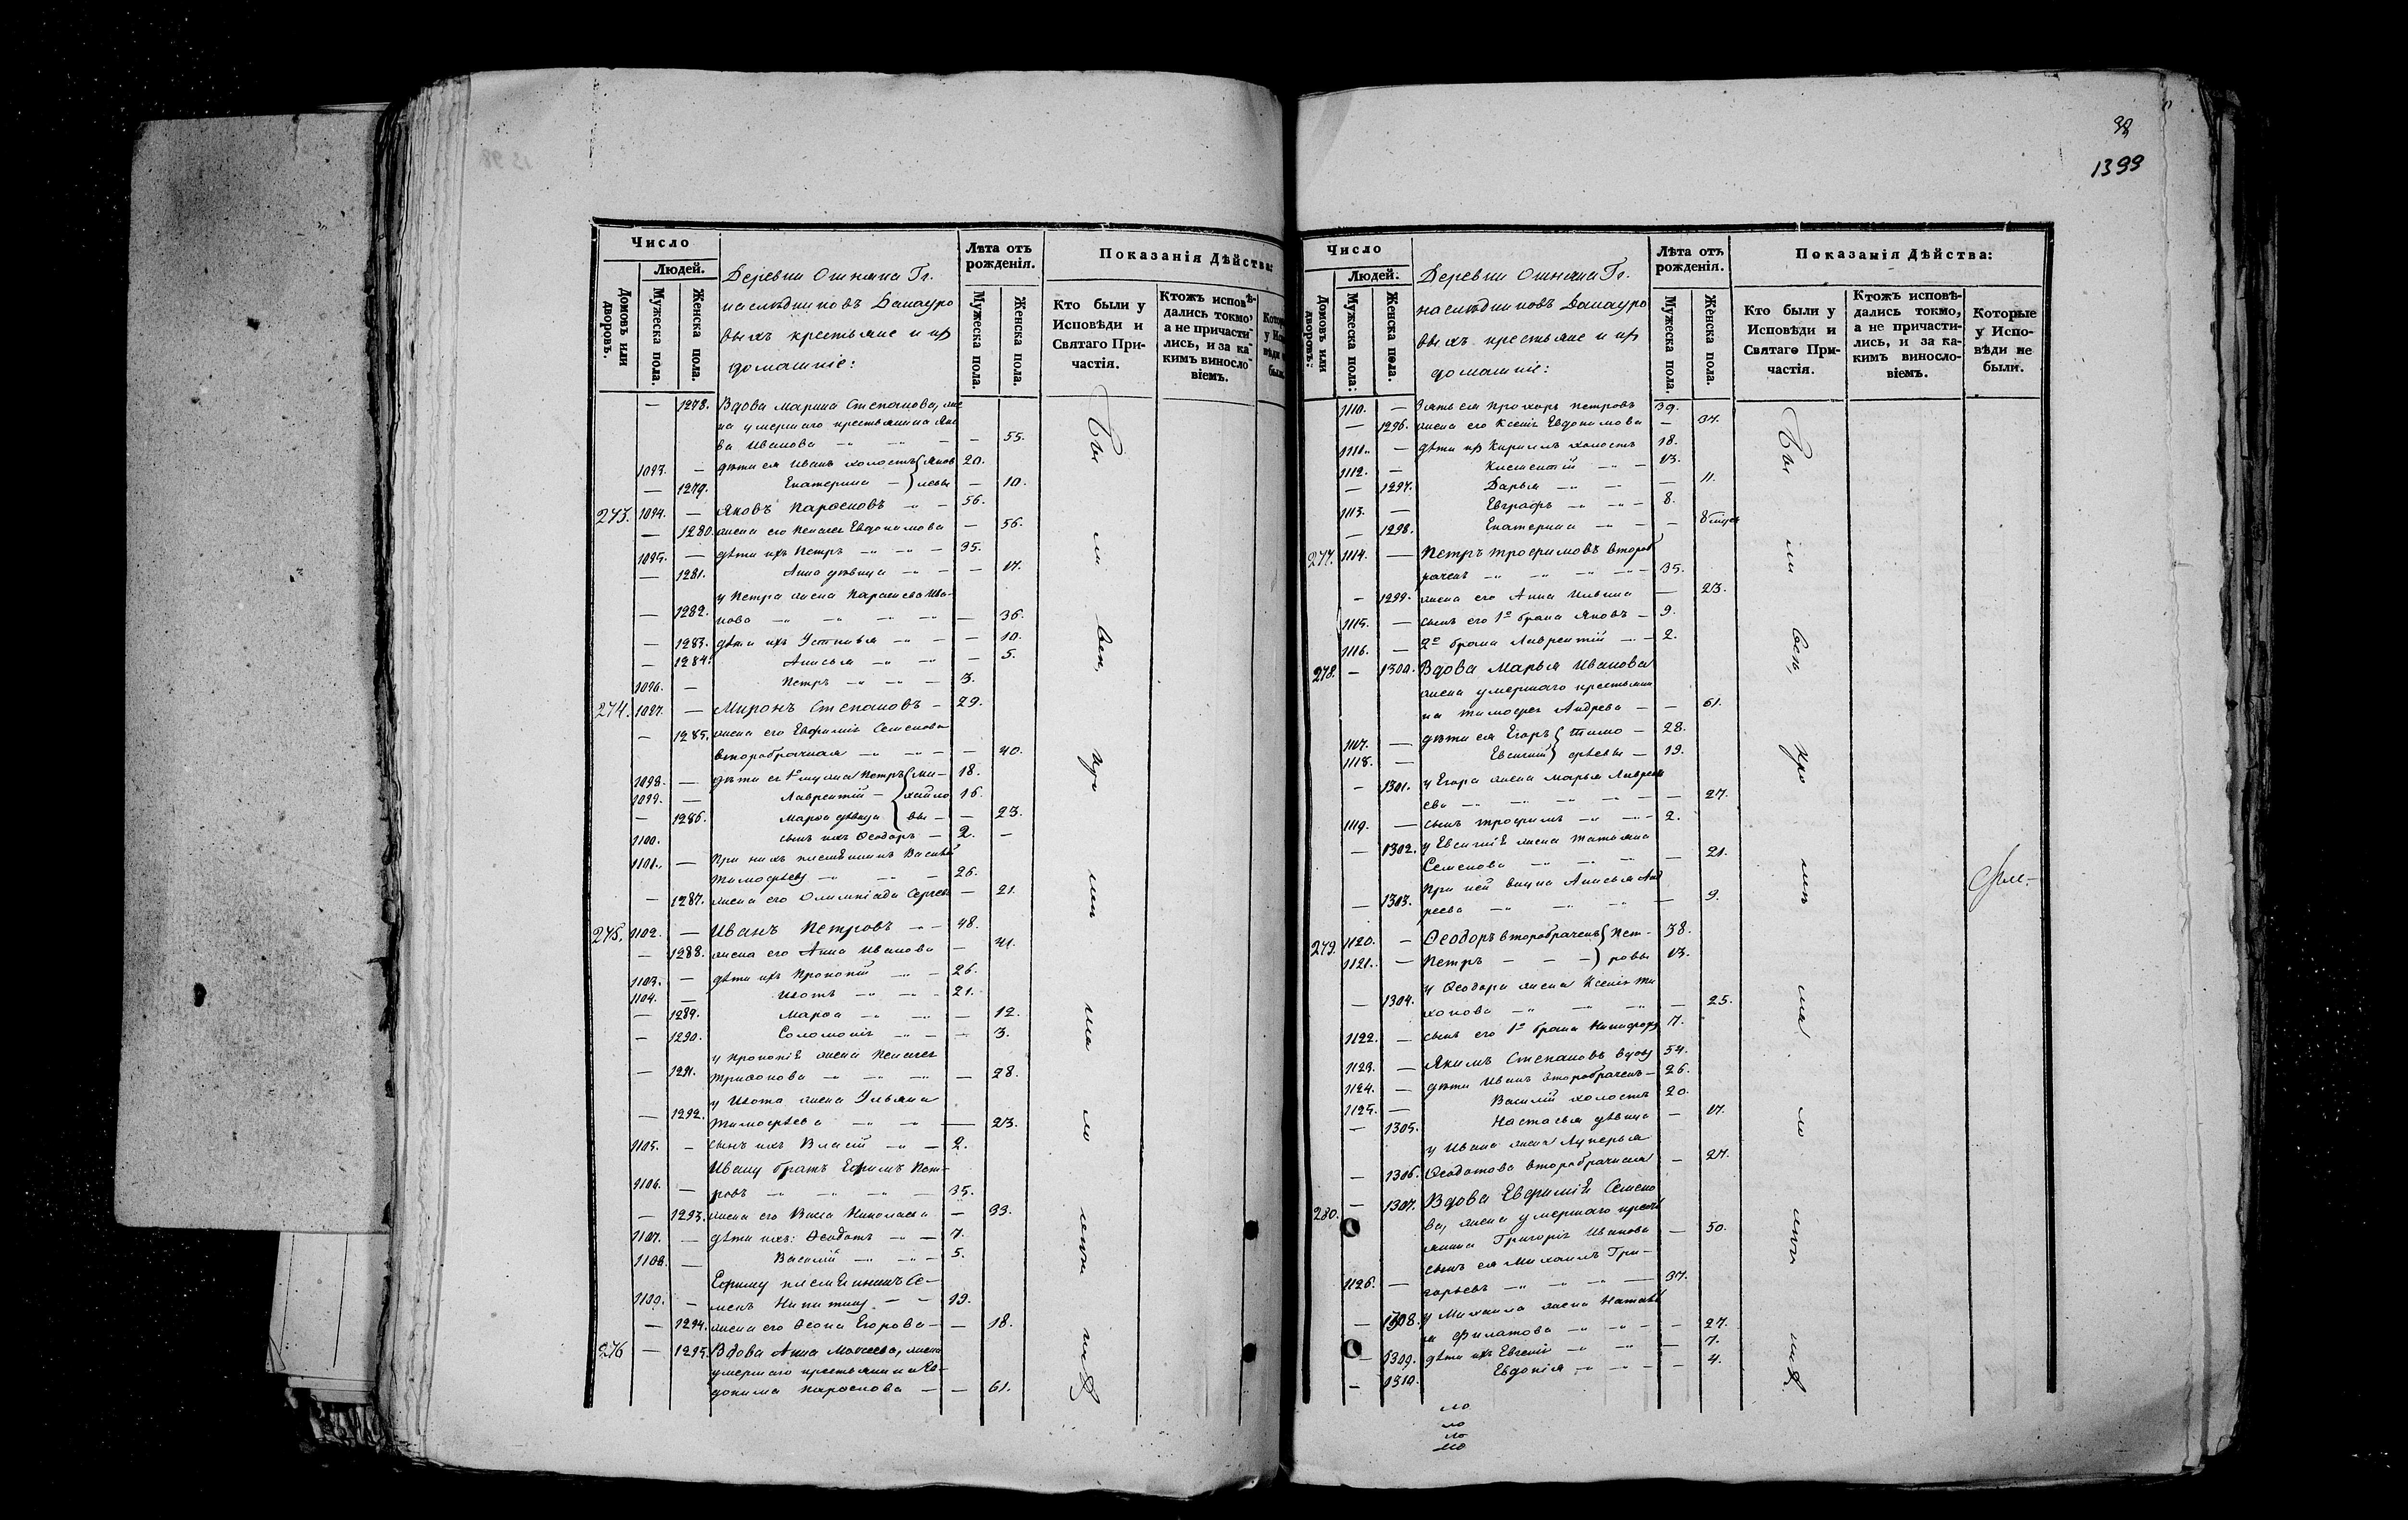 38
1399
Число
Людей.
Домовъ или дворовъ.
Мужеска пола.
Женска пола.
Деревни Ошняка Гг.
наслѣдниковъ Банауро
выхъ крестьяне и их
домашніе:
Лѣта отъ рожденія.
Мужеска пола.
Женска пола.
Показанія Дѣйства:
Кто были у Исповѣди и Святаго Причастія.
Ктожъ исповѣдались токмо, а не причастились, и за какимъ винословіемъ.
— 1278. Вдова Марина Степанова, же
на умершаго крестьянина Яко
ва Иванова — — 55.
1093. — дѣти ея Иванъ холостъ Яков 20.
— 1279. Екатерина — левы — 10.
273. 1094. — Яковъ — 56.
— 1280. жена его Пелагея Евдокимова — 56.
1095. — дѣти ихъ Петръ — 35.
— 1281. Анна дѣвица — 17.
у Петра жена Параскева Ива-
— 1282. нова — 36.
— 1283. дѣти ихъ Устинья — 10.
— 1284. Анисья — 5.
1096. — Петръ — 3.
274. 1097. — Миронъ Степановъ — 29.
— 1285. жена его Евфимія Семенова
второбрачная — 40.
1098. — дѣти ея 1го мужа Петръ Ми- 18.
1099. — Лаврентій — хайло 16.
— 1286. Марѳа дѣвица вы — 23.
1100. — сынъ ихъ Ѳеодоръ — 2. —
1101. — При нихъ племянникъ Василій
Тимофѣевъ — 26.
— 1287. жена его Олимпіада Сергѣева — 21.
275. 1102. — Иванъ Петровъ — 48.
— 1288. жена его Анна Иванова — 41.
1103. — дѣти ихъ Прокопій — 26.
1104. — Изотъ — 21.
— 1289. Марѳа — 12.
— 1290. Соломонія — 3.
у Прокопія жена Пелагея
— 1291. Трифонова — 28.
у Изота жена Ульяна
— 1292. Тимофѣева — 23.
1105. — сынъ ихъ Власій — 2.
Ивану братъ Ефимъ Пет-
1106. — ровъ — 35.
— 1293. жена его Васса Николаева — 33.
1107. — дѣти ихъ: Ѳеодотъ — 7.
1108. — Василій — 5.
Ефиму племянникъ Се-
1109. — менъ Никитинъ — 19.
— 1294. жена его Ѳеона Егорова — 18.
276 — 1295. Вдова Анна Моисеева, жена
умершаго крестьянина Ев-
докима — 61.
Бы
ли
всѣ,
Число
Людей.
Домовъ или дворовъ:
Мужеска пола:
Женска пола.
Деревни Ошняка Гг.
наслѣдниковъ Банауро
выхъ крестьяне и их
домашніе:
Лѣта отъ рожденія.
Мужеска пола.
Женска пола.
Показанія Дѣйства:
Кто были у Исповѣди и Святаго Причастія.
Ктожъ исповѣдались токмо, а не причастились, и за какимъ винословіемъ.
Которые у Исповѣди не были.
1110. — Зять ея Прохоръ Петровъ 39.
— 1296. жена его Ксенія Евдокимова — 37.
1111. — дѣти их Кириллъ холостъ 18.
1112. — Климентій — 13.
— 1297. Дарья — 11.
1113. — Евграфъ — 8.
— 1298. Екатерина —
277. 1114. — Петръ Трофимовъ второб
раченъ — 35.
— 1299. жена его Анна Ильина — 23.
1115. — сынъ его 1го брака Яковъ — 9.
1116. — 2го брака Лаврентій — 2.
278. — 1300. Вдова Марья Иванова
жена умершаго крестьяни
на Тимофея Андреева — 61.
1117. — дѣти ея Егоръ Тимо — 28.
1118. — Евсигній фѣевы — 19.
— 1301. у Егора жена Марья Лаврен
ева — 27.
1119. — сынъ Трофимъ — 2.
— 1302. у Евсигнія жена Татьяна
Семенова — 21.
При ней внука Анисья Анд
— 1303. реева — 9.
279. 1120. — Ѳеодоръ второбраченъ Пет- 38.
1121. — Петръ — ровы 13.
у Ѳеодора жена Ксенія Ти
— 1304. хонова — 25.
1122. — сынъ его 1го брака Никифоръ 17.
1123. — Якимъ Степановъ вдовъ 54.
1124. — дѣти Иванъ второбраченъ — 26.
1125. — Василій холостъ 20.
— 1305. Настасья дѣвица — 17.
у Ивана жена Лукерья
— 1306. Ѳеодотова второбрачная — 27.
280. — 1307. Вдова Евфимія Семено
ва, жена умершаго кресть
янина Григорія Иванова — 50.
сынъ ея Михаилъ Гри-
1126. — горьевъ — 37.
— 1308. у Михаила жена Наталь
я Филатова — 27.
— 1309. дѣти ихъ Евгенія — 7.
— 1310. Евдокія — 4.
Бы
ли
всѣ,